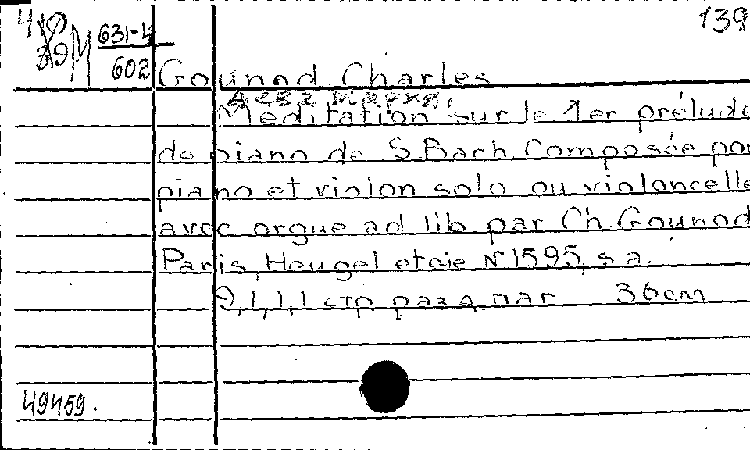 139
М 631-4
602
Gounod Charles
Meditation sur le 1er prélude
de piano de S. Bach Composée pou
piano et violon solo ou violoncelle
avec orgue ad lib par Ch Gounod
Paris, Heugel et cie N 1595, s a.
9,1,1,1 стр разд паг 36cm
49459.